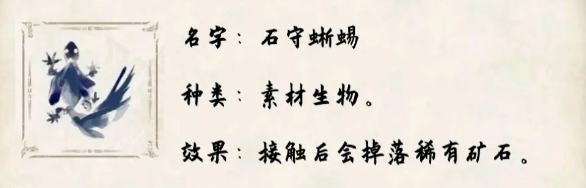 名字：石守蜥蜴
种类：素材生物。
效果：接触后会掉落稀有矿石。